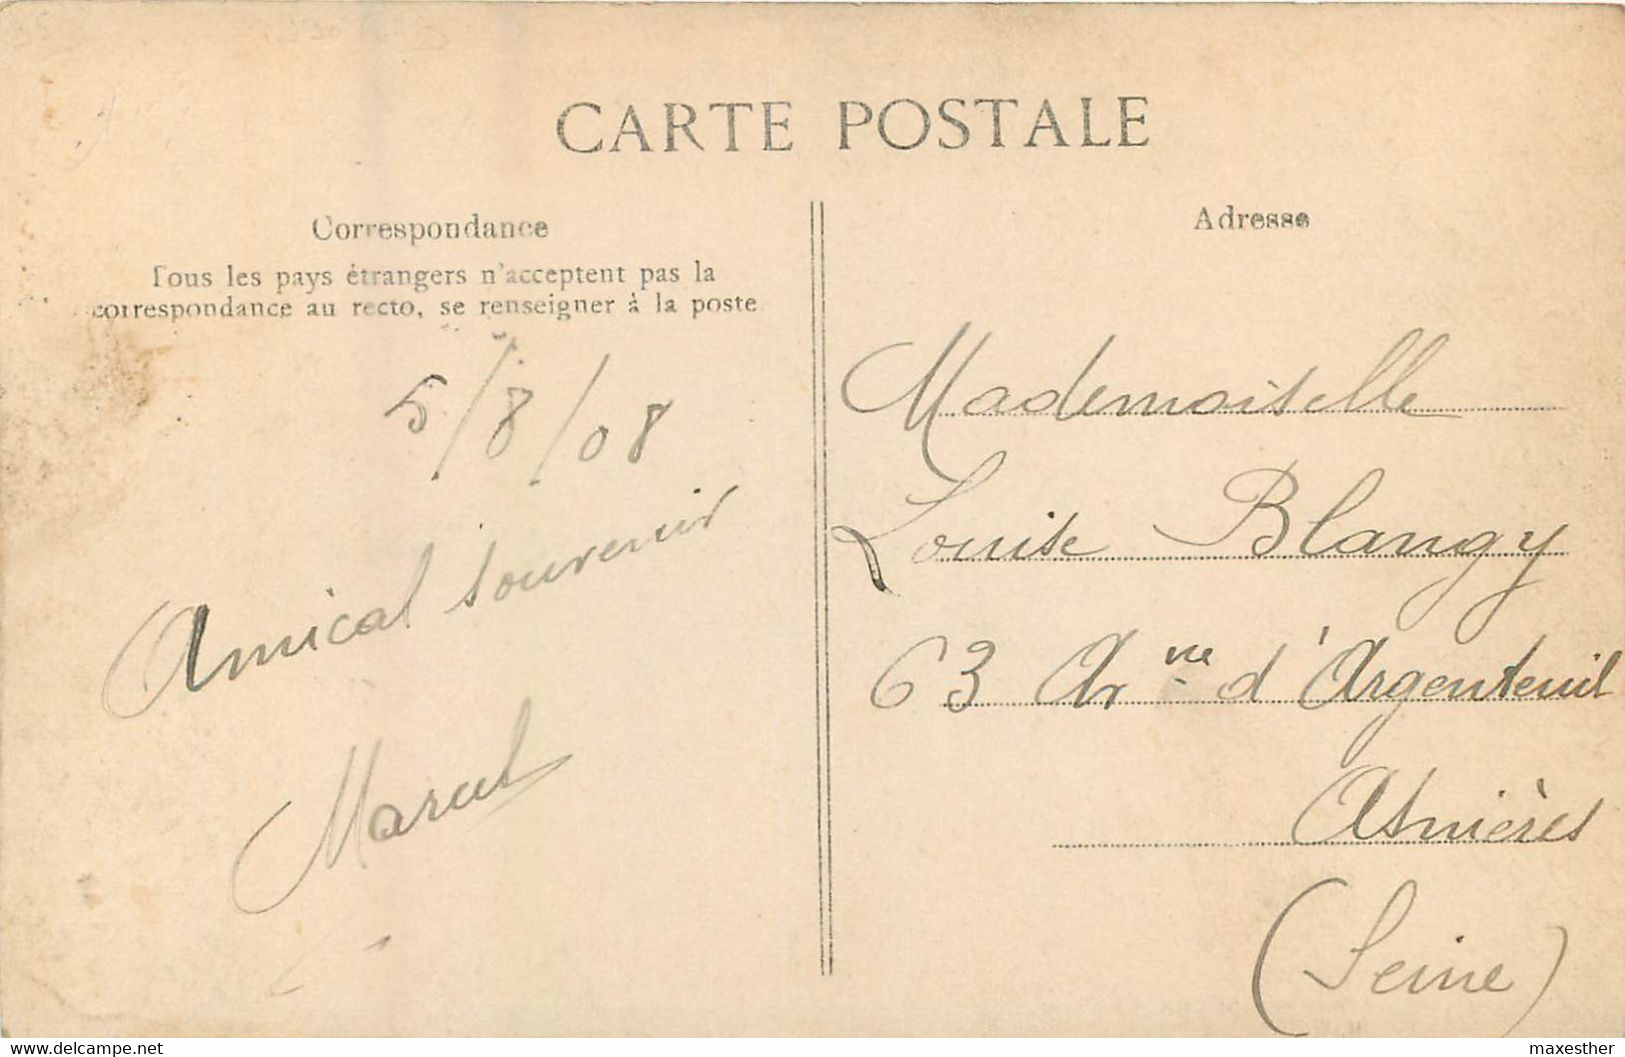 CARTE POSTALE
Correspondance
Tous les pays étrangers n'acceptent pas la
correspondance au recto, se renseigner à la poste
5/8/08
Amical souvenir
Marcel
Adresse
Mademoiselle
Louise Blangy
63 Av nue d'Argenteuil
Asnières
(Seine)
www.delcampe.net
maxesther